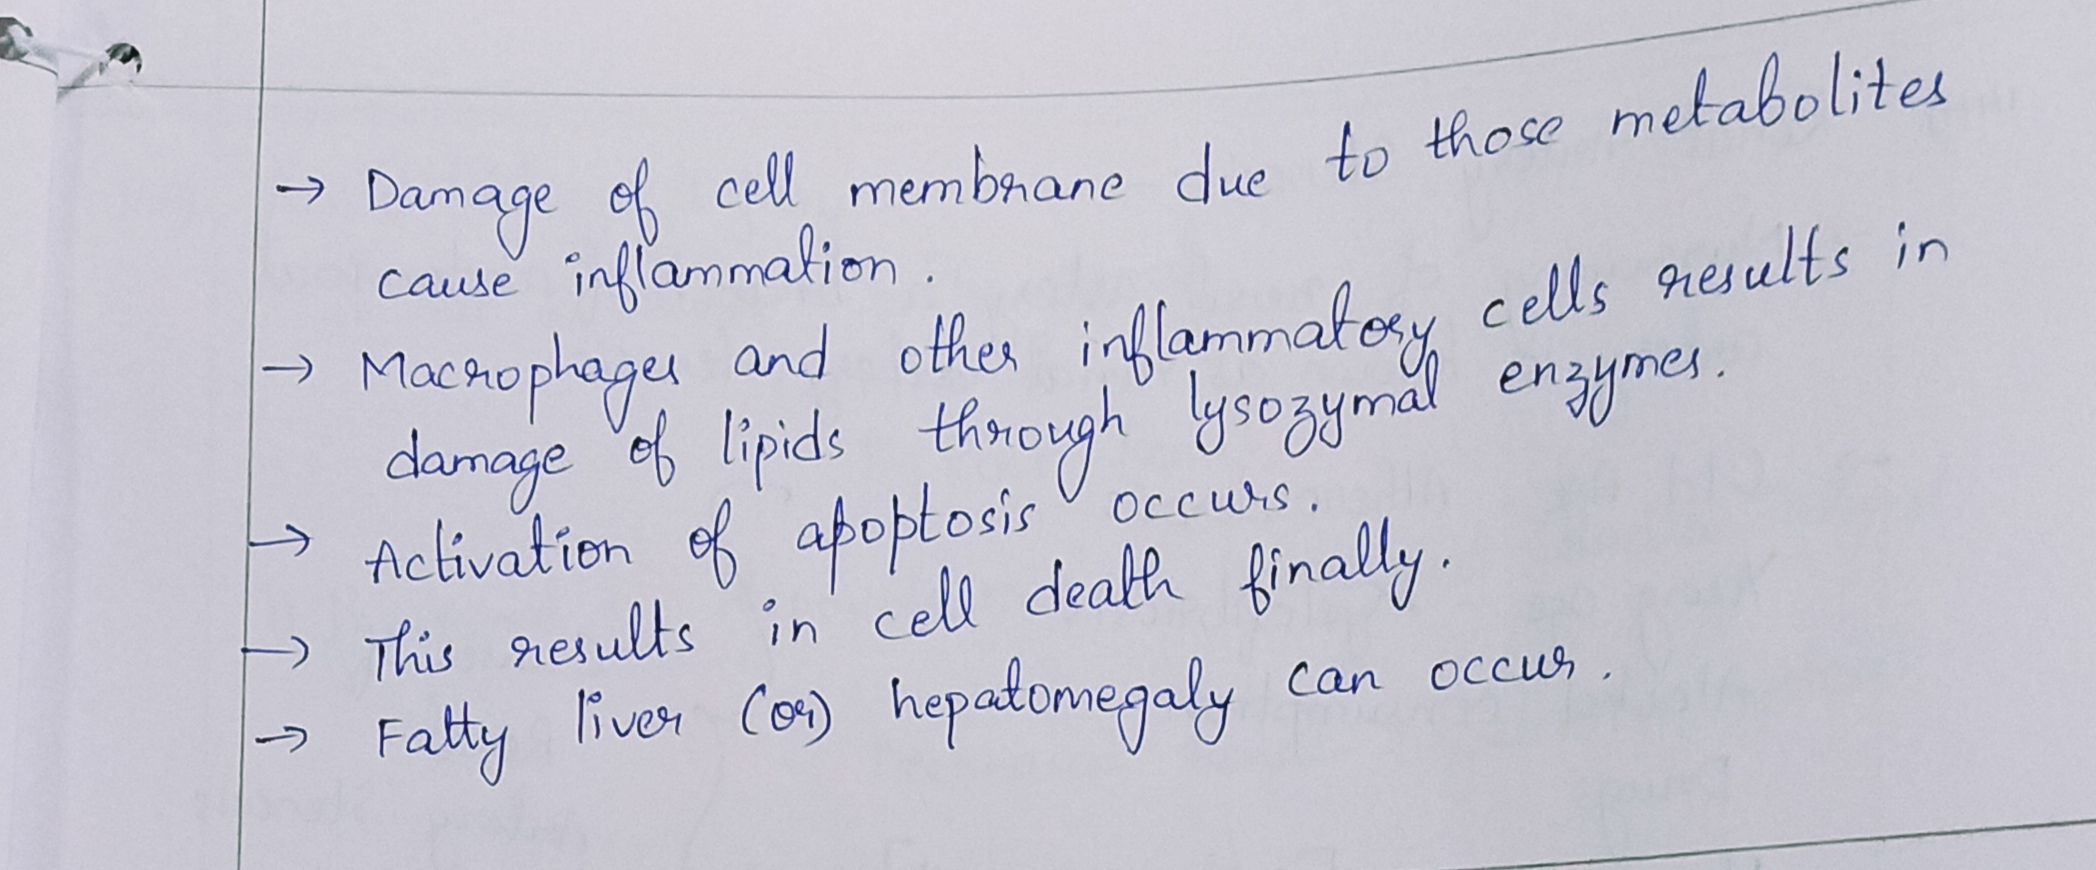 → Damage of cell membrane due to those metabolites
cause inflammation.
→ Macrophages and other inflammatory cells results in
damage of lipids through lysozymal enzymes.
→ Activation of apoptosis occurs.
→ This results in cell death finally.
→ Fatty liver (or) hepatomegaly can occur.